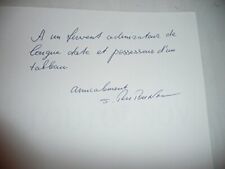 A un fervent admirateur de
longue date et possesseur d'un
tableau.
amicalement
J.